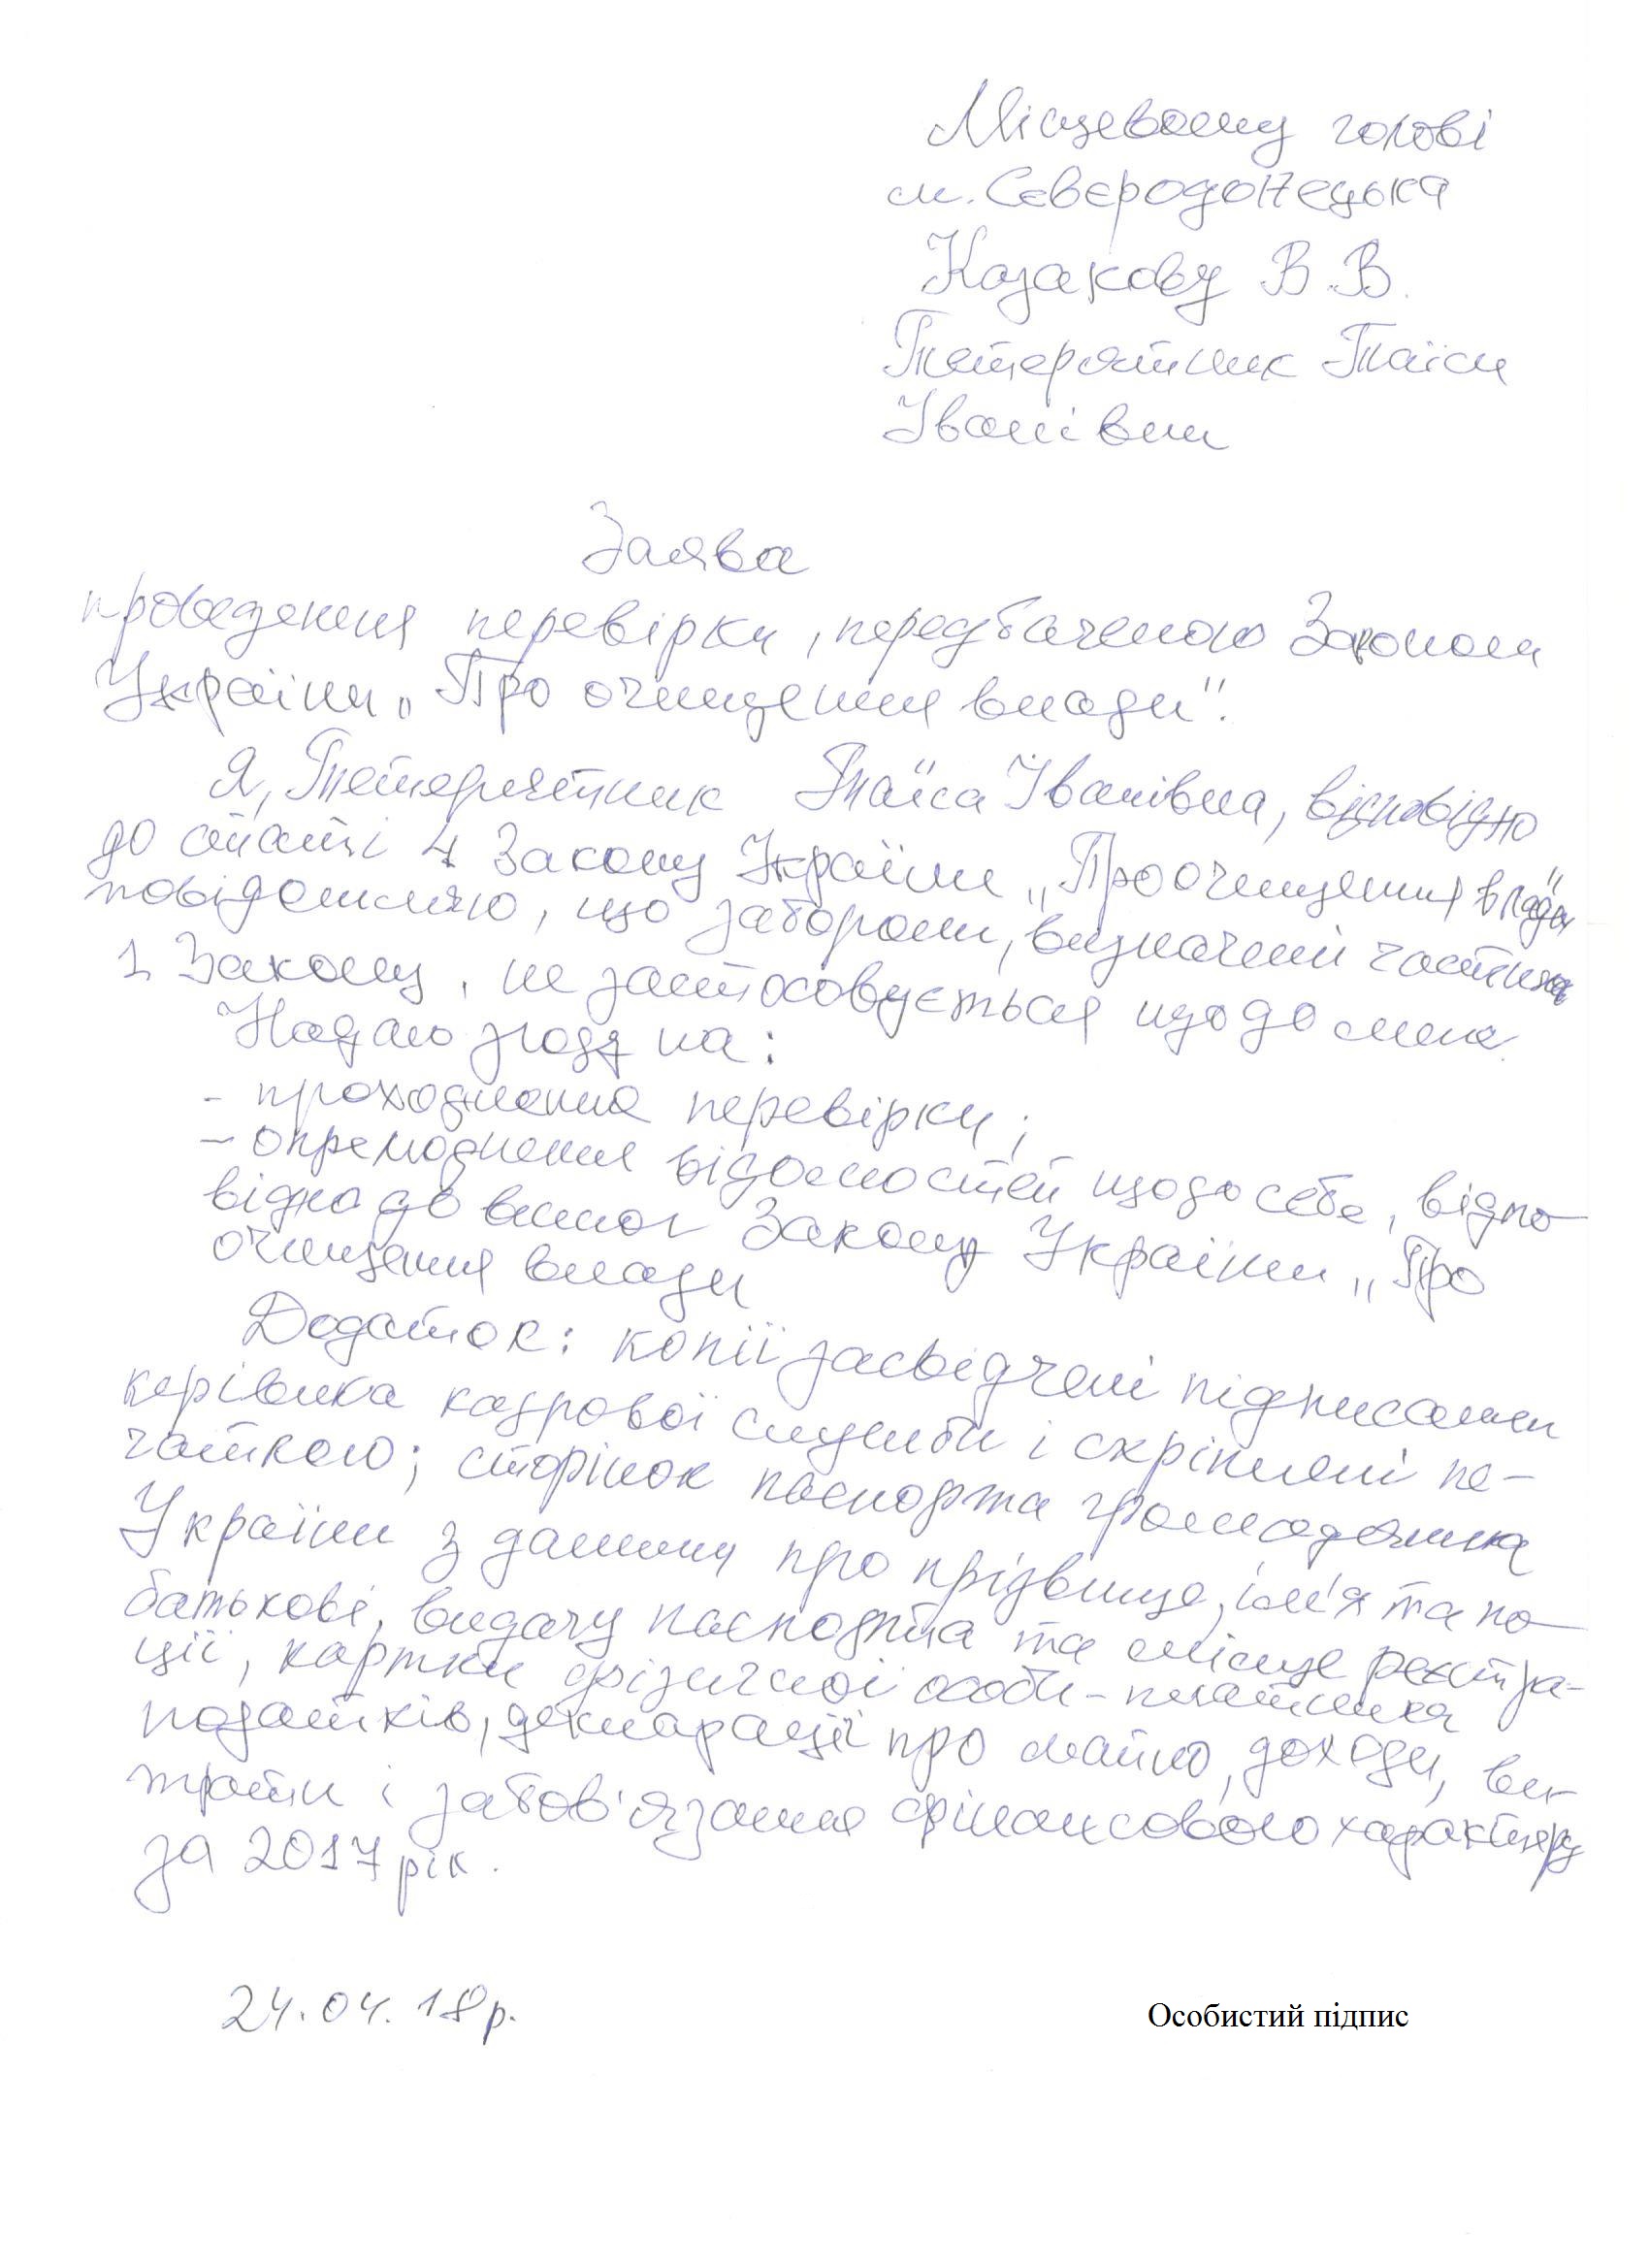 Місцевому голові
м. Сєвєродонецька
Казакову В.В.
Тетерятник Таїси
Іванівни
Заява
проведення перевірки, передбаченою Законом
України „Про очищення влади".
Я, Тетерятник Таїса Іванівна, відповідно
до статті 4 Закону України „Про очищення влади"
повідомляю, що заборони, визначені частина
1 Закону, не застосовується щодо мене.
Надаю згоду на:
- проходження перевірки;
- опрелюднення відомостей щодо себе, відпо-
відно до вимог Закону України „Про
очищення влади
Додаток: копії засвідчені підписами
керівника кадрової служби і скріплені пе-
чаткою; сторінок паспорта громадянина
України з даними про прізвище, ім'я та по-
батькові, видачу паспорта та місце реєстра-
ції, картки фізичної особи-платника
податків, декларації про майно, доходи, ви-
трати і забов'язання фінансового характеру
за 2017 рік.
24.04.18р.
Особистий підпис